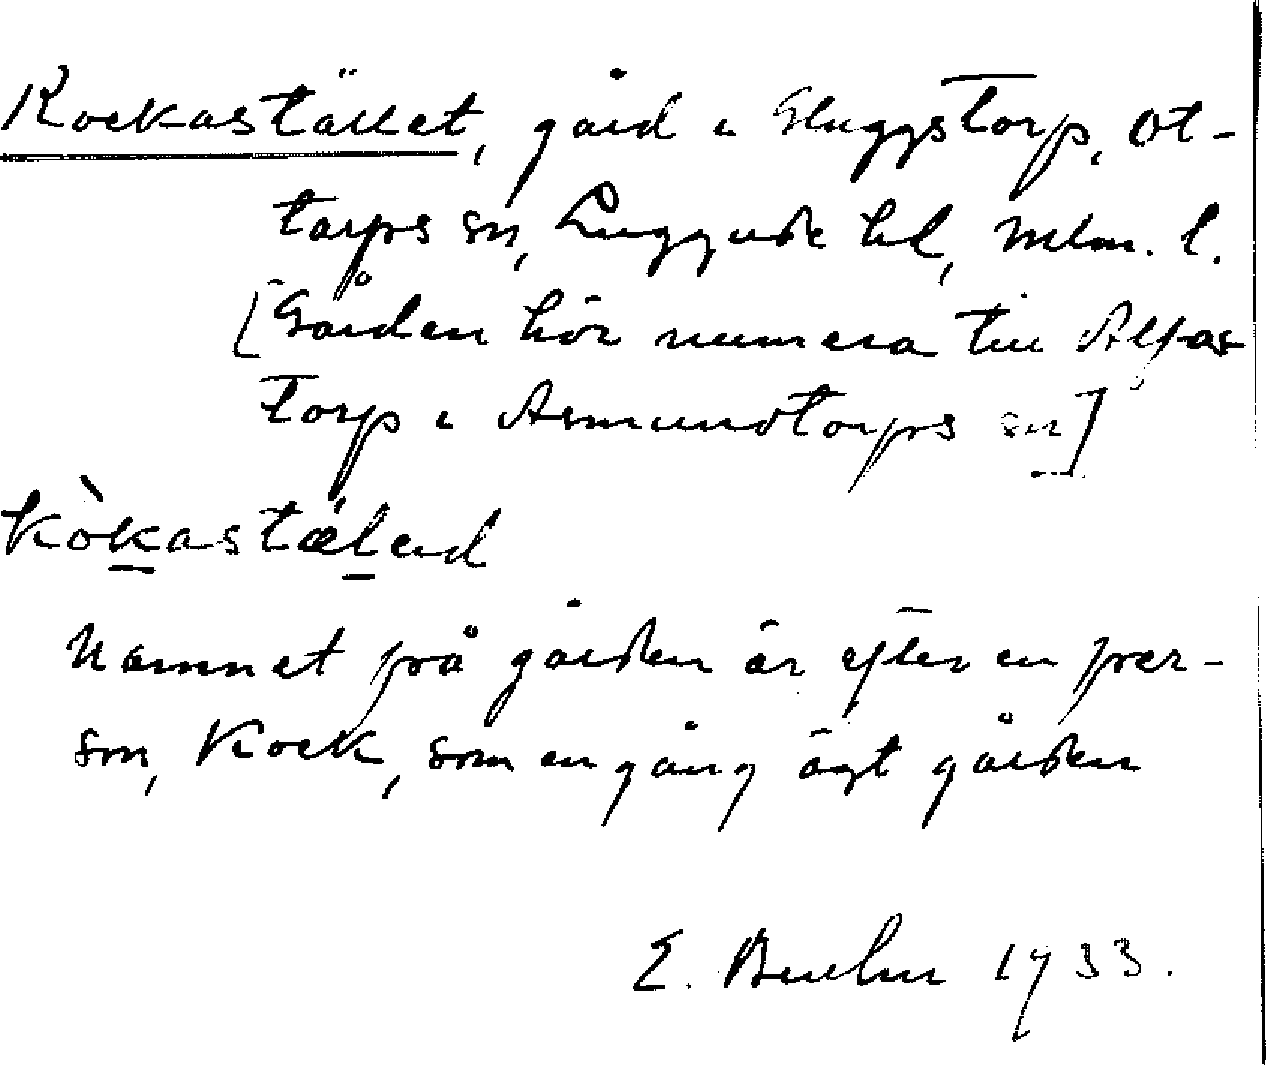 Kockastället, gård i Sluggstorp, Ot-
tarps sn, Luggude hd, Mlm. l.
[Gården hör numera till Alfas
torp i Asmundtorps sn]
kòkastǽlad
Namnet på gården är efter en per-
son, Kock, som en gång ägt gården
E. 1933.